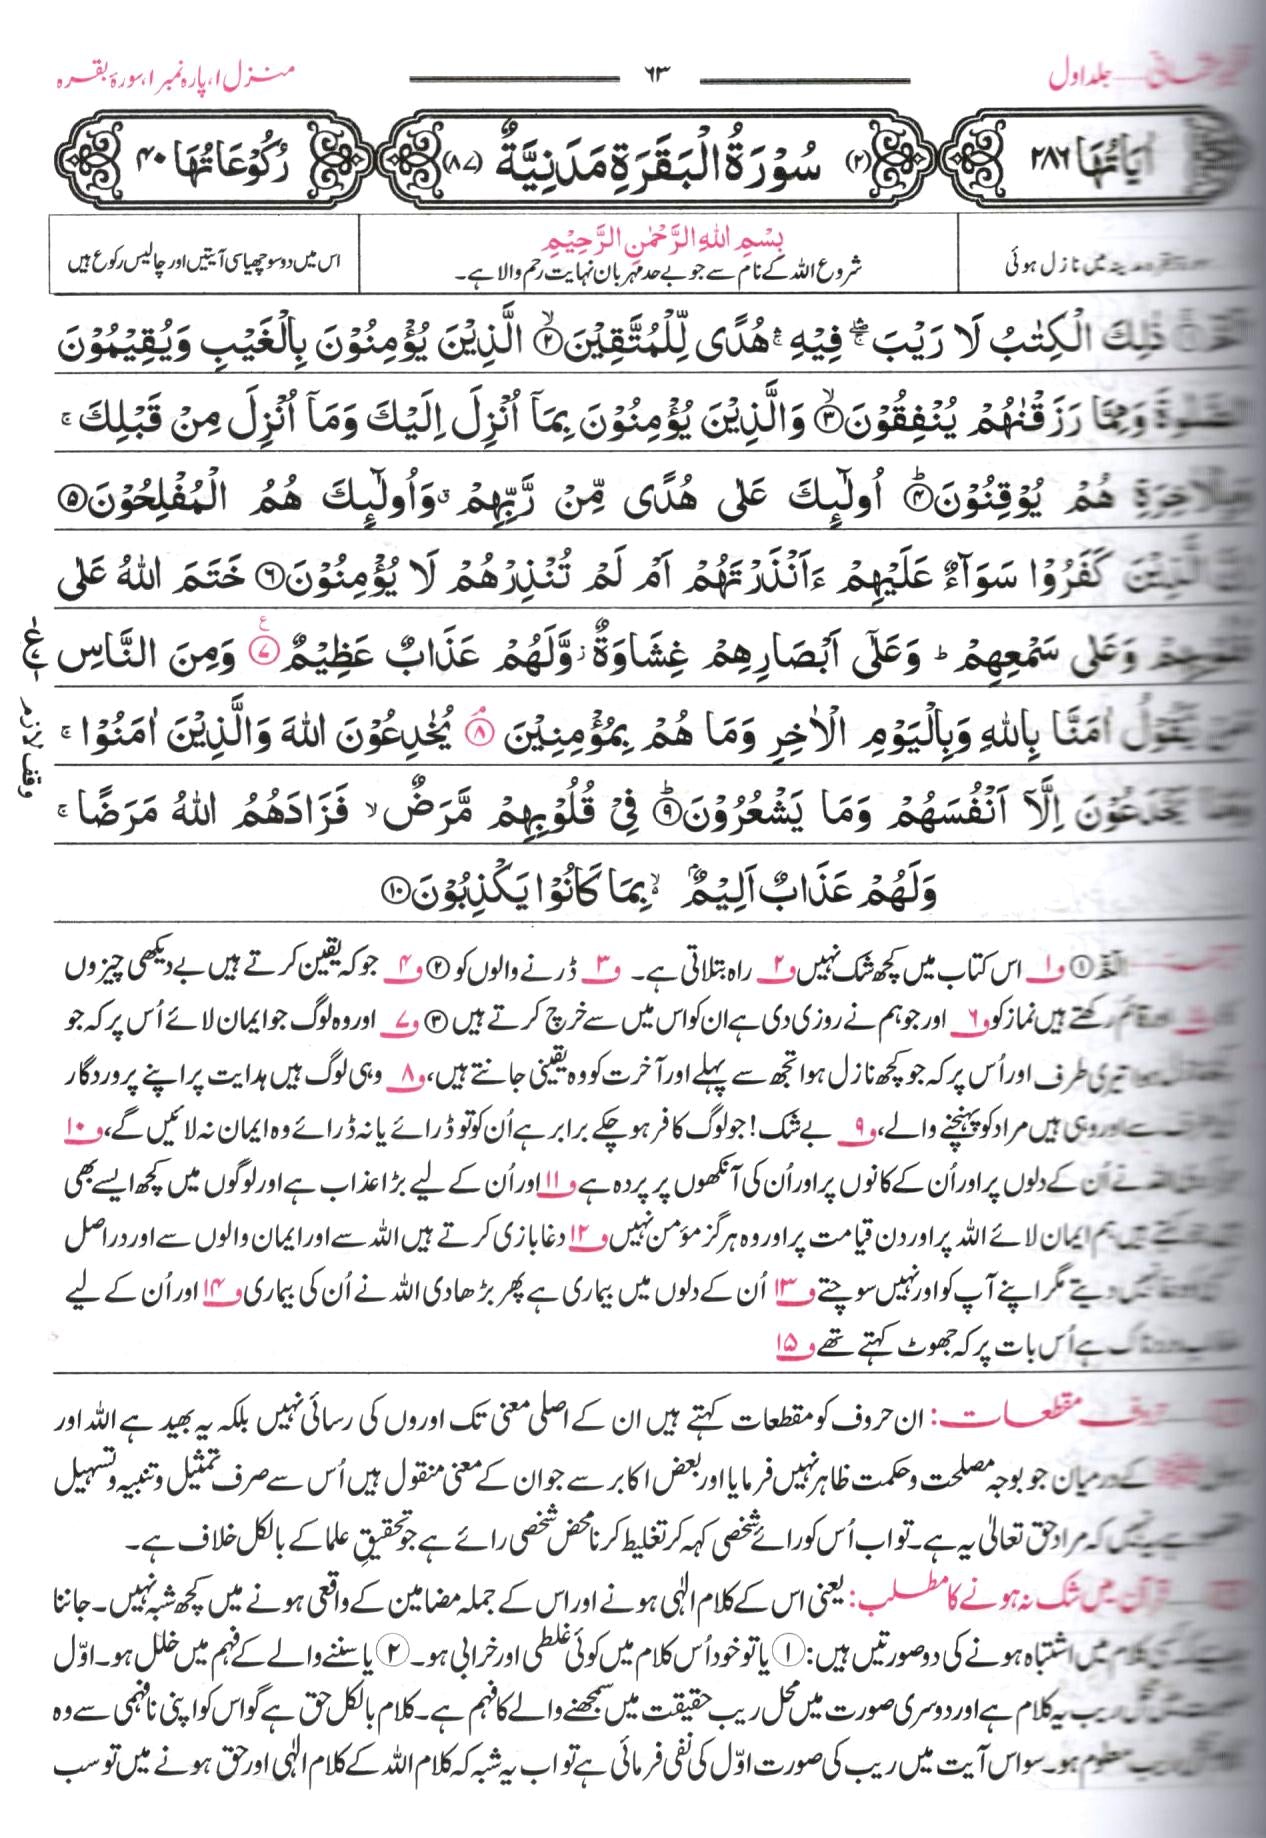 جلد اول
۶۳
منزل ۱، پارہ نمبر ۱، سورۂ بقرہ
اٰیَاتُهَا ۲۸۶
(۲) سُوْرَةُ الْبَقَرَةِ مَدَنِیَّةٌ (۸۷)
رُکُوْعَاتُهَا ۴۰
مدینہ میں نازل ہوئی
بِسْمِ اللهِ الرَّحْمٰنِ الرَّحِیْمِ
شروع اللہ کے نام سے جو بے حد مہربان نہایت رحم والا ہے۔
اس میں دو سو چھیاسی آیتیں اور چالیس رکوع ہیں
ذٰلِكَ الْكِتٰبُ لَا رَیْبَ ۛۚ فِیْهِ ۛۚ هُدًی لِّلْمُتَّقِیْنَ ۙ﴿۲﴾ الَّذِیْنَ یُؤْمِنُوْنَ بِالْغَیْبِ وَیُقِیْمُوْنَ
الصَّلٰوةَ وَمِمَّا رَزَقْنٰهُمْ یُنْفِقُوْنَ ۙ﴿۳﴾ وَالَّذِیْنَ یُؤْمِنُوْنَ بِمَاۤ اُنْزِلَ اِلَیْكَ وَمَاۤ اُنْزِلَ مِنْ قَبْلِكَ ۚ
وَبِالْاٰخِرَةِ هُمْ یُوْقِنُوْنَ ؕ﴿۴﴾ اُولٰٓئِكَ عَلٰی هُدًی مِّنْ رَّبِّهِمْ ۗ وَاُولٰٓئِكَ هُمُ الْمُفْلِحُوْنَ ﴿۵﴾
اِنَّ الَّذِیْنَ كَفَرُوْا سَوَآءٌ عَلَیْهِمْ ءَاَنْذَرْتَهُمْ اَمْ لَمْ تُنْذِرْهُمْ لَا یُؤْمِنُوْنَ ﴿۶﴾ خَتَمَ اللهُ عَلٰی
قُلُوْبِهِمْ وَعَلٰی سَمْعِهِمْ ؕ وَعَلٰۤی اَبْصَارِهِمْ غِشَاوَةٌ ۫ وَّلَهُمْ عَذَابٌ عَظِیْمٌ ﴿۷﴾ وَمِنَ النَّاسِ
مَنْ یَّقُوْلُ اٰمَنَّا بِاللهِ وَبِالْیَوْمِ الْاٰخِرِ وَمَا هُمْ بِمُؤْمِنِیْنَ ۘ﴿۸﴾ یُخٰدِعُوْنَ اللهَ وَالَّذِیْنَ اٰمَنُوْا ۚ
وَمَا یَخْدَعُوْنَ اِلَّاۤ اَنْفُسَهُمْ وَمَا یَشْعُرُوْنَ ؕ﴿۹﴾ فِیْ قُلُوْبِهِمْ مَّرَضٌ ۙ فَزَادَهُمُ اللهُ مَرَضًا ۚ
وَلَهُمْ عَذَابٌ اَلِیْمٌۢ ۙ بِمَا كَانُوْا یَكْذِبُوْنَ ﴿۱۰﴾
وقف لازم
الٓمّٓ ① ف۱ اس کتاب میں کچھ شک نہیں ف۲ راہ بتلاتی ہے۔ ف۳ ڈرنے والوں کو ② ف۴ جو کہ یقین کرتے ہیں بے دیکھی چیزوں
اور قائم رکھتے ہیں نماز کو ف۶ اور جو ہم نے روزی دی ہے ان کو اس میں سے خرچ کرتے ہیں ③ ف۷ اور وہ لوگ جو ایمان لائے اُس پر کہ جو
تیری طرف اور اُس پر کہ جو کچھ نازل ہوا تجھ سے پہلے اور آخرت کو وہ یقینی جانتے ہیں، ف۸ وہی لوگ ہیں ہدایت پر اپنے پروردگار
کی طرف سے اور وہی ہیں مراد کو پہنچنے والے، ف۹ بے شک! جو لوگ کافر ہو چکے برابر ہے اُن کو تو ڈرائے یا نہ ڈرائے وہ ایمان نہ لائیں گے، ف۱۰
اللہ نے اُن کے دلوں پر اور اُن کے کانوں پر اور اُن کی آنکھوں پر پردہ ہے ف۱۱ اور اُن کے لیے بڑا عذاب ہے اور لوگوں میں کچھ ایسے بھی
ہیں جو کہتے ہیں ہم ایمان لائے اللہ پر اور دن قیامت پر اور وہ ہرگز مؤمن نہیں ف۱۲ دغابازی کرتے ہیں اللہ سے اور ایمان والوں سے اور دراصل
کسی کو دغا نہیں دیتے مگر اپنے آپ کو اور نہیں سوچتے ف۱۳ اُن کے دلوں میں بیماری ہے پھر بڑھا دی اللہ نے اُن کی بیماری ف۱۴ اور اُن کے لیے
عذاب دردناک ہے اُس بات پر کہ جھوٹ کہتے تھے ف۱۵
حروف مقطعات: ان حروف کو مقطعات کہتے ہیں ان کے اصلی معنی تک اوروں کی رسائی نہیں بلکہ یہ بھید ہے اللہ اور
کے درمیان جو بوجہ مصلحت و حکمت ظاہر نہیں فرمایا اور بعض اکابر سے جو ان کے معنی منقول ہیں اُس سے صرف تمثیل و تنبیہ و تسہیل
مقصود ہے یہ نہیں کہ مراد حق تعالیٰ یہ ہے۔ تو اب اُس کو رائے شخصی کہہ کر تغلیط کرنا محض شخصی رائے ہے جو تحقیقِ علما کے بالکل خلاف ہے۔
قرآن میں شک نہ ہونے کا مطلب: یعنی اس کے کلام الٰہی ہونے اور اس کے جملہ مضامین کے واقعی ہونے میں کچھ شبہ نہیں۔ جاننا
چاہیے کہ کسی کلام میں اشتباہ ہونے کی دو صورتیں ہیں: ① یا تو خود اُس کلام میں کوئی غلطی اور خرابی ہو۔ ② یا سننے والے کے فہم میں خلل ہو۔ اوّل
صورت میں محل ریب یہ کلام ہے اور دوسری صورت میں محل ریب حقیقت میں سمجھنے والے کا فہم ہے۔ کلام بالکل حق ہے گو اس کو اپنی نافہمی سے وہ
ریب معلوم ہو۔ سو اس آیت میں ریب کی صورت اوّل کی نفی فرمائی ہے تو اب یہ شبہ کہ کلام اللہ کے کلام الٰہی اور حق ہونے میں تو سب